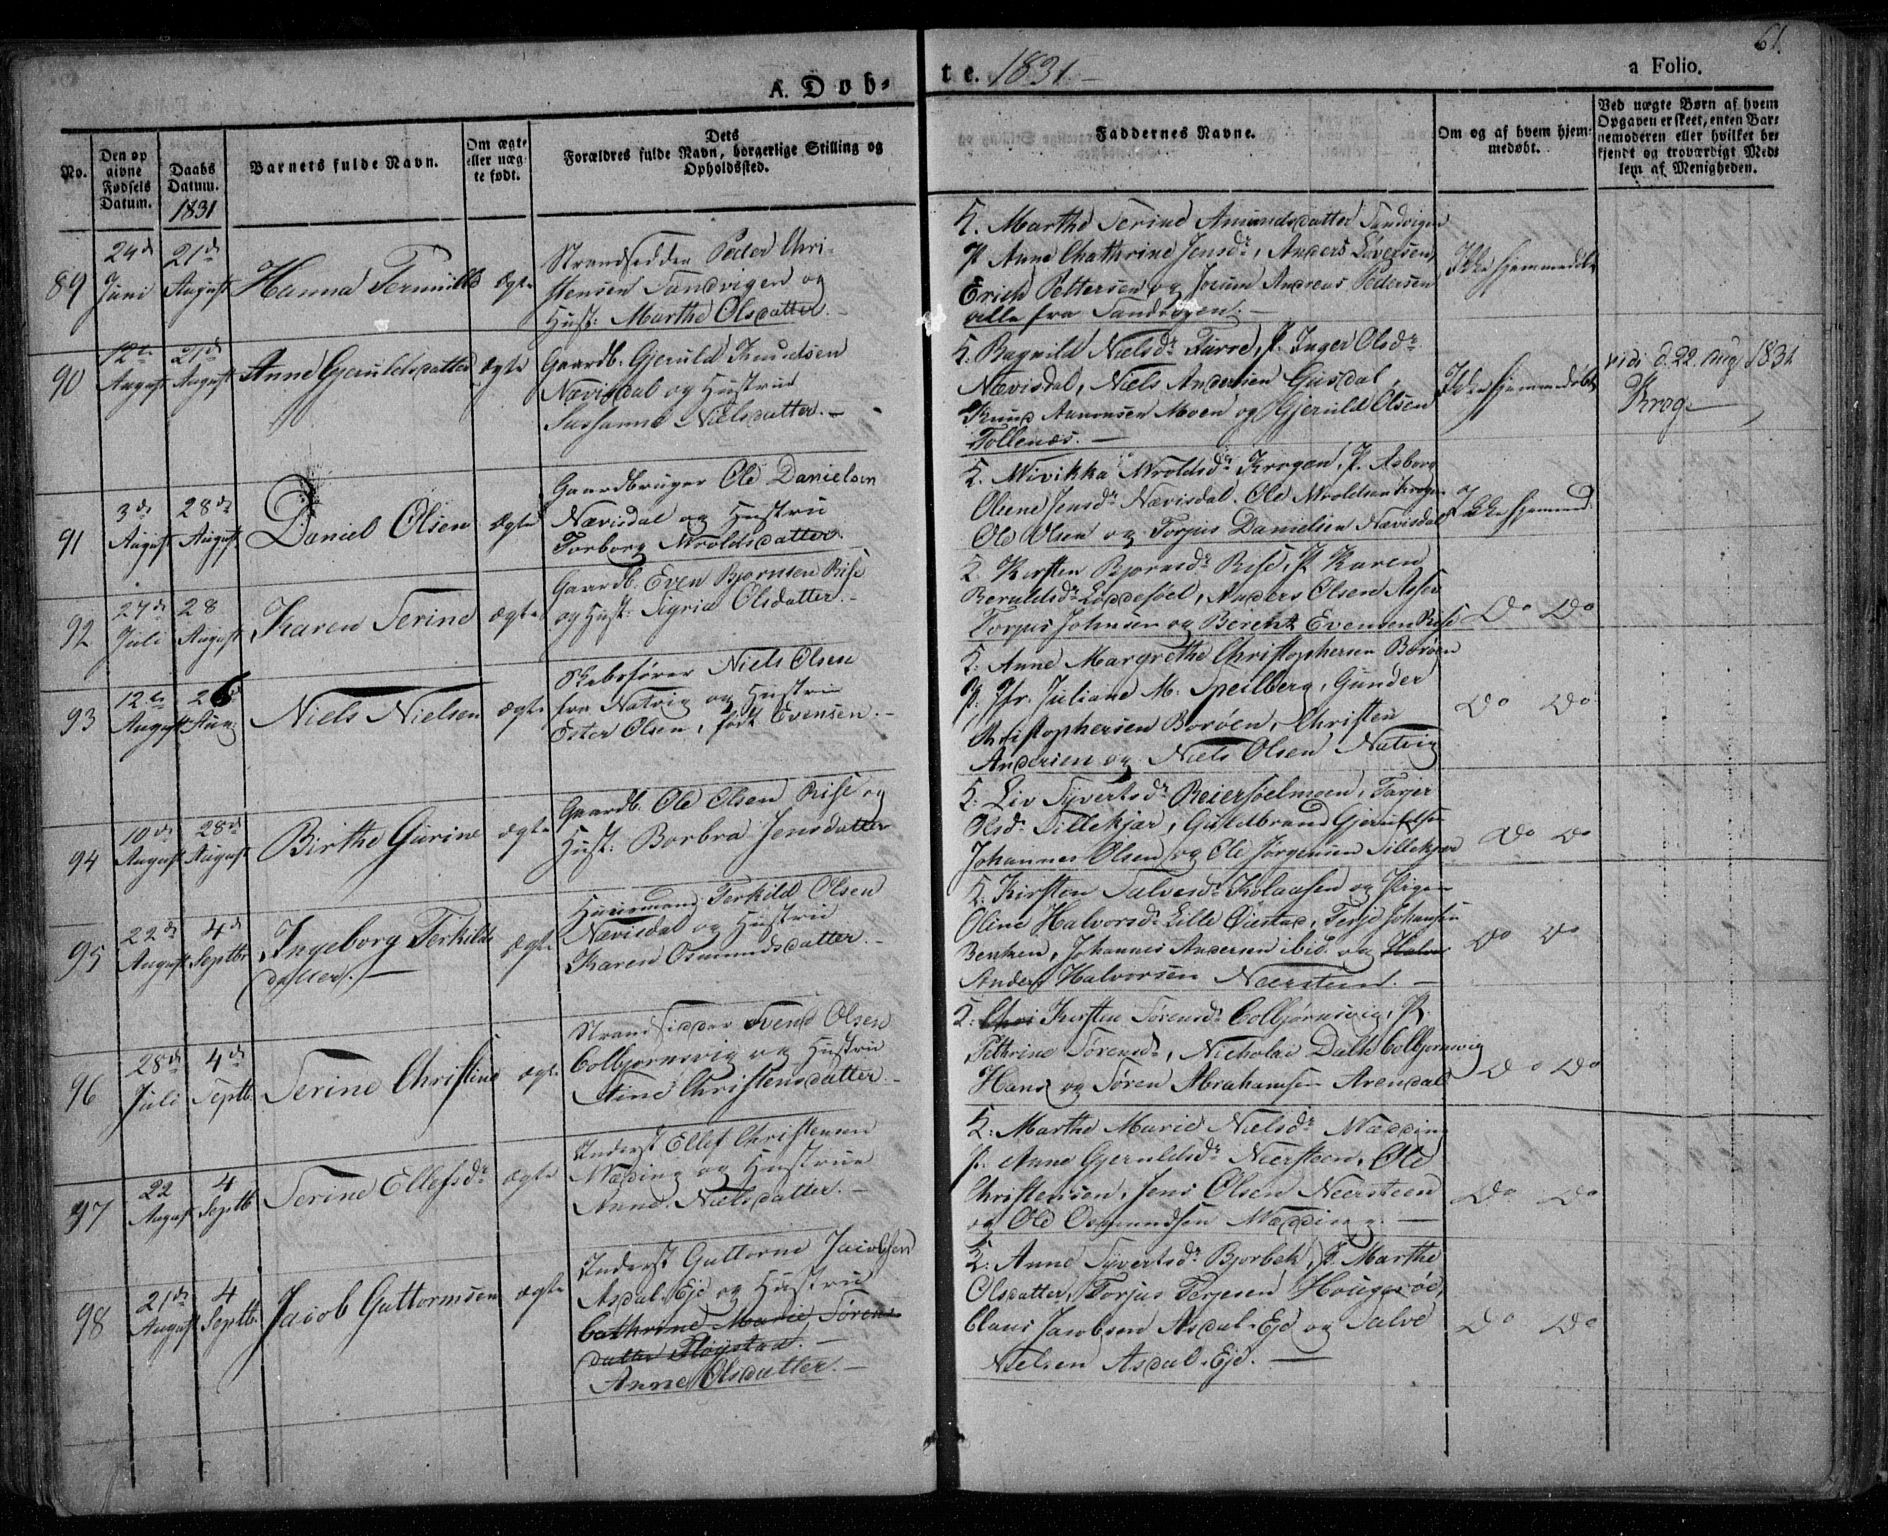 61.
A. Døb-
te. 1831.-
a Folio.
No.
Den op
givne
Fødsels
Datum.
Daabs
Datum.
1831
Barnets fulde Navn.
Om ægte
eller uæg-
te født.
Dets
Forældres fulde Navn, borgerlige Stilling og
Opholdssted.
Faddernes Navne.
Om og af hvem hjem-
medøbt.
Ved uægte Børn af hvem
Opgaven er skeet, enten Bar-
nemoderen eller hvilket be-
kjendt og troværdigt Med-
lem af Menigheden.
89
24de
Juni
21de
August
Hanna
ægte
Strandsidder Peder Chri-
stensen Sandvigen og
Hust: Marthe Olsdatter.-
K. Marthe Serine Amundsdatter Sandvigen
P. Anne Chathrine Jensdr, Anders
Erich Pettersen og Andreas Pedersen
alle fra Sandvigen.-
Ikke hjemmedøbt
90
12te
August
21de
August
Anne Gjeruldsdatter
ægte
Gaardb. Gjeruld Knudsen
Nævisdal og Hustrue
Susanne Nielsdatter.-
K. Ragnild Nielsdr P. Inger Olsdr
Nævisdal, Niels Andersen
Knud Aanonsen Moen og Gjeruld Olsen
Tollenæs.-
Ikke hjemmedøbt
vidi d. 22 Aug 1831
Krog
91
3de
August
28de
August
Daniel Olsen
ægte
Gaardbruger Ole Danielsen
Nævisdal og Hustru
Torborg Aroldsdatter.
K. Aroldsdr Krogen, P. Asborg
Olene Jensdr Nævisdal. Ole Aroldsen Krogen
Ole Olsen og Torjus Danielsen Nævisdal
Ikke hjemmed
92
27de
Juli
28
August
Karen Serine
ægte
Gaardb. Even Bjørnsen Rise
og Hust: Sigrid Olsdatter.-
K. Kirsten Bjørnsdr Rise, P. Karen
Beruldsdr Anders Olsen
Torjus Johnsen og Berent Evensen Rise
Do Do
93
12te
August
26
Aug:
Niels Nielsen
ægte
Skibsfører Niels Olsen
fra Natvig og Hustru
Ester Olsen, født Evensen.-
K. Anne Margrethe Christophersen Borøen
P. Jfr. Juliane M. Speilberg, Gunder
Christophersen Borøen, Christen
Andersen og Niels Olsen Natvig
Do Do
94
10de
August
28de
August
Birthe Gurine
ægte
Gaardb. Ole Olsen Rise og
Hust: Borbra Jensdatter
K. Liv Syvertsdr
Olsdr Sillekjær, Guldbrand
Johannes Olsen og Ole Jørgensen Sillekjær
Do Do
95
22de
August
4de
Septbr
Ingeborg Terkilds
datter.-
ægte
Huusmand Terkild Olsen
Nævisdal og Hustrue
Karen Osmundsdatter.-
K. Kirsten Salvesdr og Pigen
Oline Halvorsdr Lille Øiestad, Terje Johansen
Johannes Andersen ibid. og
Anders Halvorsen Neersteen.-
Do Do
96
28de
Juli
4de
Septb.
Serine Christine
ægte
Strandsidder Svend Olsen
Colbjørnsvig og Hustru
Stine Christensdatter.-
K: Kirsten Sørensdr Colbjørnsvig, P.
Pethrine Sørensdr, Nicholai Colbjørnsvig
Hans og Søren Abrahamsen Arendal
Do Do
97
22
August
4
Septb
Serine Ellefsdr
ægte
Inderst Ellef Christensen
Næsding og Hustrue
Anne Nielsdatter.-
K. Marthe Marie Nielsdr
P. Anne Gjeruldsdr Neersteen, Ole
Christensen, Jens Olsen Neersteen
og Ole Osmundsen
Do Do
98
21de
August
4
Septb.
Jacob Guttormsen
ægte
Inderst Guttorm Jacobsen
Asdal-Eje og Hustrue
Cathrine Marie Sørens
datter Fløystad.-
Anne Olsdatter.-
K. Anne Syvertsdr Bjorbek, P. Marthe
Olsdatter, Torjus Terjesen
Claus Jacobsen Asdal-Eje og Salve
Nielsen Asdal-Eje.-
Do Do